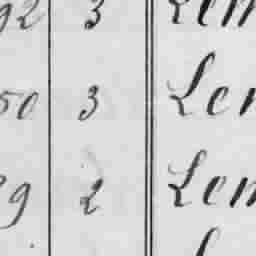 92 3 Lem
50 3 Len
9 2 Lem